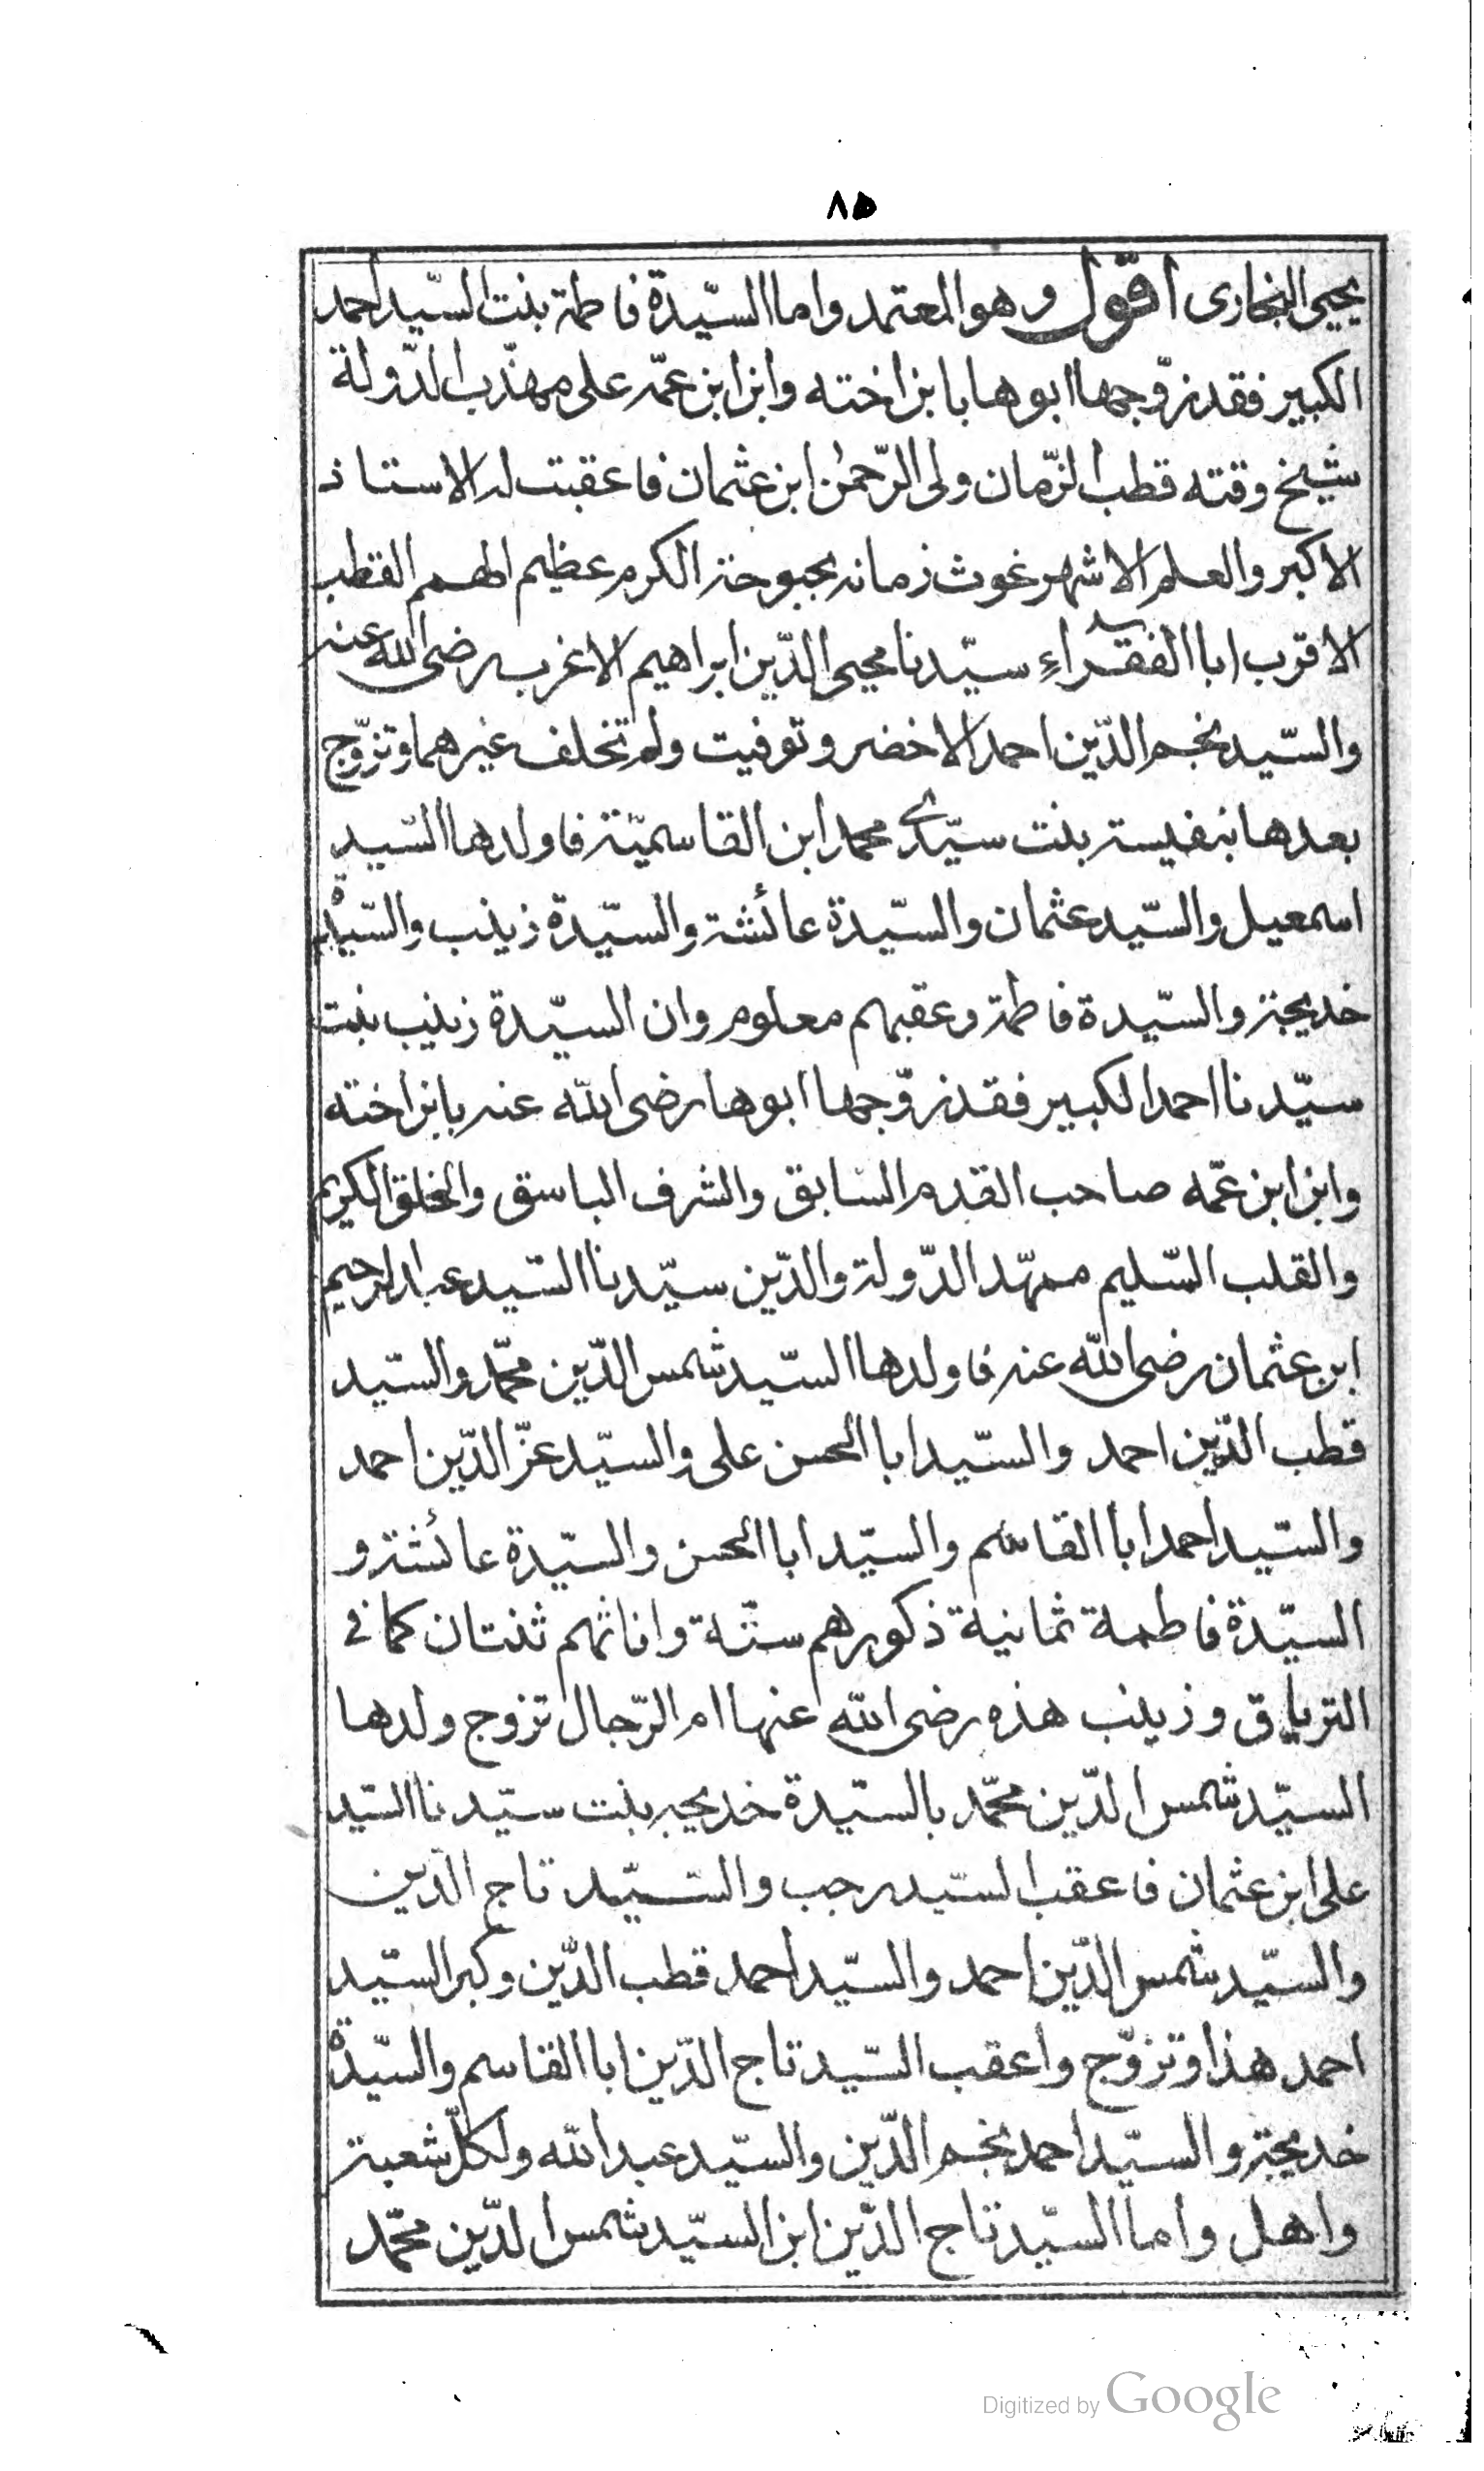 ٨٥
يحيى النجارى اقول وهو المعتمد واما السّيّدة فاطمة بنت السّيّد احمد
الكبير فقد زوّجها ابوها بابن اخته وابن ابن عمّه على مهذّب الدّولة
شيخ وقته قطب الزّمان ولى الرّحمٰن ابن عثمان فاعقبت له الاستاذ
الاكبر والعلم الاشهر غوث زمانه بحبوحة الكرم عظيم الهمم القطب
الاقرب ابا الفقراءِ سيّدنا محيى الدّين ابراهيم الاعزب رضى الله عنه
والسّيد نجم الدّين احمد الاخضر وتوفيت ولم تخلف غيرهما وتزوّج
بعدها بنفيسة بنت سيّدى محمد ابن القاسميّة فاولدها السّيد
اسمعيل والسّيد عثمان والسّيدة عائشة والسّيّدة زينب والسّيّدة
خديجة والسّيّدة فاطمة وعقبهم معلوم وان السيّدة زينب بنت
سيّدنا احمد الكبير فقد زوّجها ابوها رضى الله عنه بابن اخته
وابن ابن عمّه صاحب القدم السابق والشرف الباسق والخلق الكريم
والقلب السّليم ممهّد الدّولة والدّين سيّدنا السّيد عبد الرحيم
ابن عثمان رضى الله عنه فاولدها السّيد شمس الدّين محمّد والسّيد
قطب الدّين احمد والسّيد ابا الحسن على والسيّد عزّ الدّين احمد
والسّيد احمد ابا القاسم والسيّد ابا الحسن والسيّدة عائشة و
السيّدة فاطمة ثمانية ذكورهم ستّة واناثهم ثنتان كما فى
الترياق وزينب هذه رضى الله عنها ام الرّجال تزوج ولدها
السيّد شمس الدّين محمّد بالسيّدة خديجه بنت سيّدنا السّيد
على ابن عثمان فاعقب السيد رجب والسّيّد تاج الدّين
والسيّد شمس الدّين احمد والسّيد احمد قطب الدّين وكبر السيّد
احمد هذا وتزوّج واعقب السّيد تاج الدّين ابا القاسم والسيّدة
خديجة والسيّد احمد نجم الدّين والسيّد عبد الله ولكلّ شعبة
واهل واما السيّد تاج الدّين ابن السيّد شمس الدّين محمّد
Digitized by Google